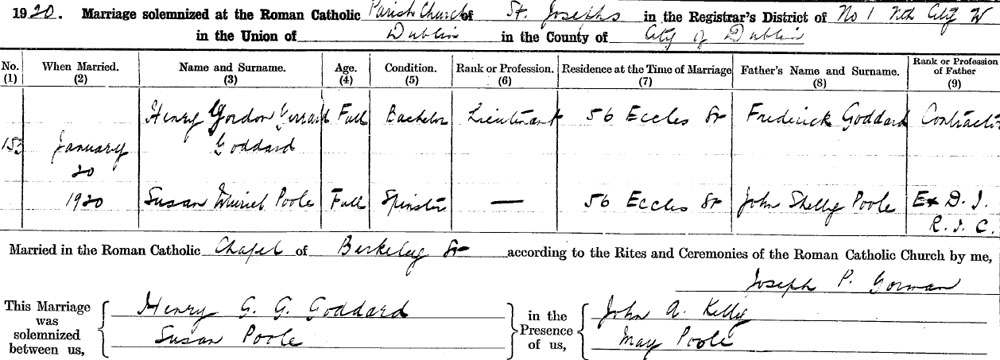 1920. Marriage solemnized at the Roman Catholic Parish Church of St. Josephs in the Registrar's District of No 1 Nth City W
in the Union of Dublin in the County of City of Dublin
No. (1) When Married. (2) Name and Surname. (3) Age. (4) Condition. (5) Rank or Profession. (6) Residence at the Time of Marriage (7) Father's Name and Surname. (8) Rank or Profession of Father (9)
Henry Gordon Gerrard Full Bachelor Lieutenant 56 Eccles St Frederick Goddard Contractor
153 January Goddard
20
1920 Susan Muriel Poole Full Spinster — 56 Eccles St John Shelly Poole Ex D. I.
R. I. C.
Married in the Roman Catholic Chapel of Berkeley St according to the Rites and Ceremonies of the Roman Catholic Church by me,
Joseph P. Gorman
This Marriage was solemnized between us,
Henry G. G. Goddard
Susan Poole
in the Presence of us,
John A. Kelly
May Poole